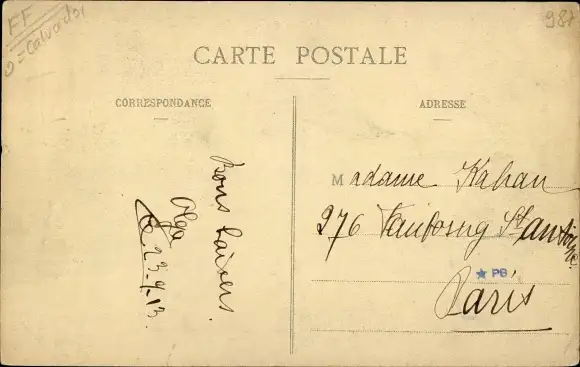 FF
0=Calvados
987
CARTE POSTALE
CORRESPONDANCE
ADRESSE
Bons baisers
Olga
le 23-9-13.
Madame Kahan
276 Faubosug St antoine
★ PB
Paris